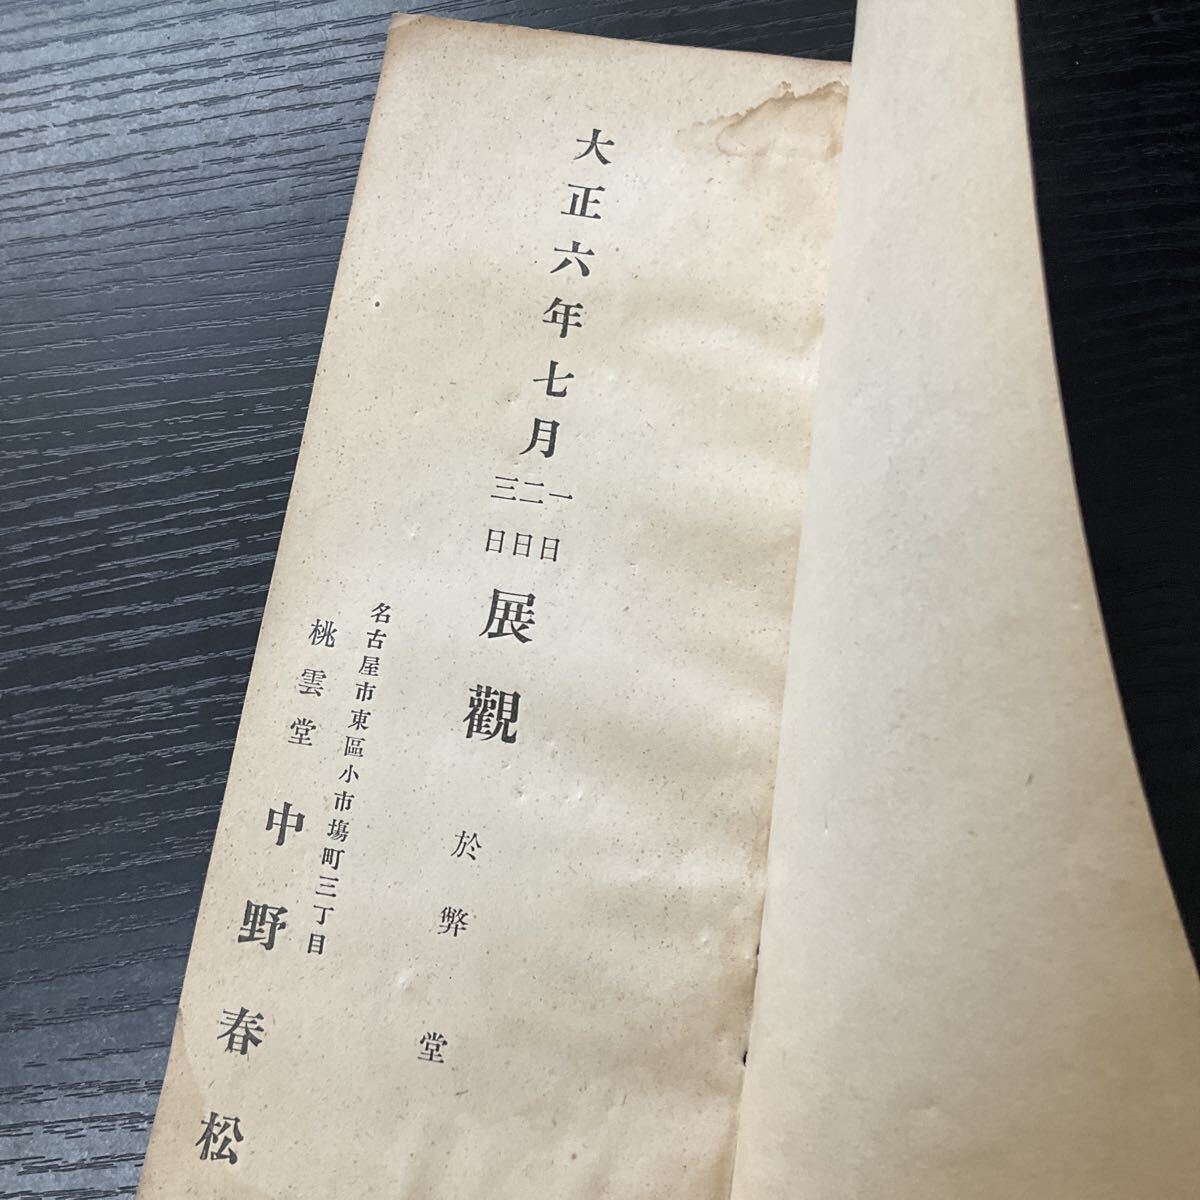 大正六年七月
一日
二日
三日
展觀
於弊堂
名古屋市東區小市塲町三丁目
桃雲堂 中野春松